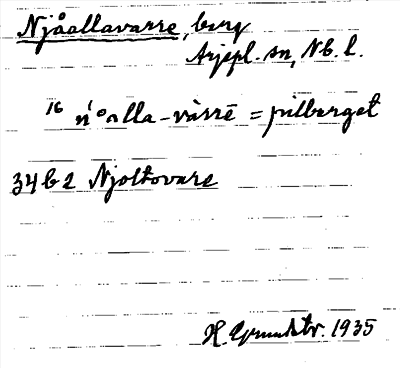 Njåallavarre, berg
Arjepl. sn, Nb. l.
16 n'°alla-vàrrē = pilberget
34 b 2 Njoltovare
H. Grundstr. 1935